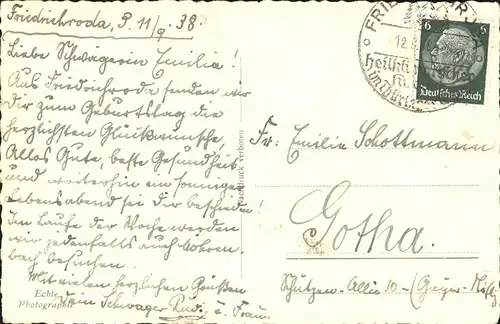 Friedrichroda, d. 11/9. 38.
Liebe Schwägerin Emilia!
Aus Friedrichroda senden wir
Dir zum Geburtstag die
herzlichsten Glückwünsche,
Alles Gute, beste Gesundheit
und weiterhin ein sonniger
Lebensabend sei dir beschieden!
Im Laufe der Woche werden
wir jedenfalls auch
besuchen.
Mit vielen herzlichen Grüßen
Dein Schwager Rud. u. Frau.
Echte
Photographie
Nachdruck verboten
FRIE
12.
6 6
Deutsches Reich
Fr. Emilie Schottmann
Gotha.
Schützen-Allee 10